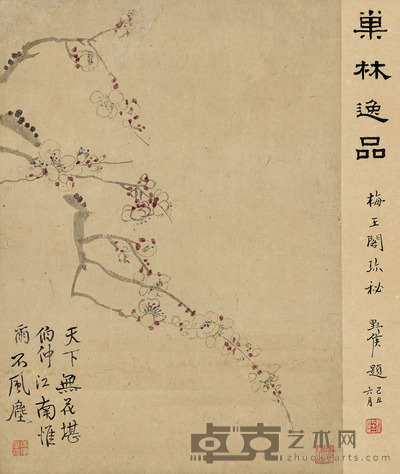 巢林逸品
梅王閣珍秘
野侯題
己丑
六月
天下無花堪
伯仲江南惟
爾不風塵
卓克艺术网
www.zhuokearts.com